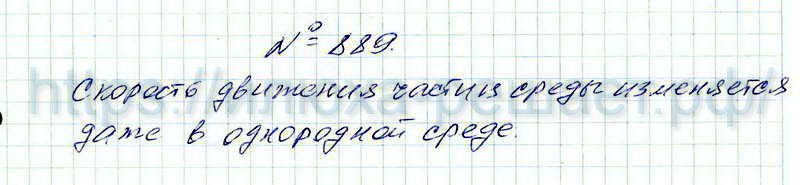 № 889.
Скорость движения частиц среды изменяется
даже в однородной среде.